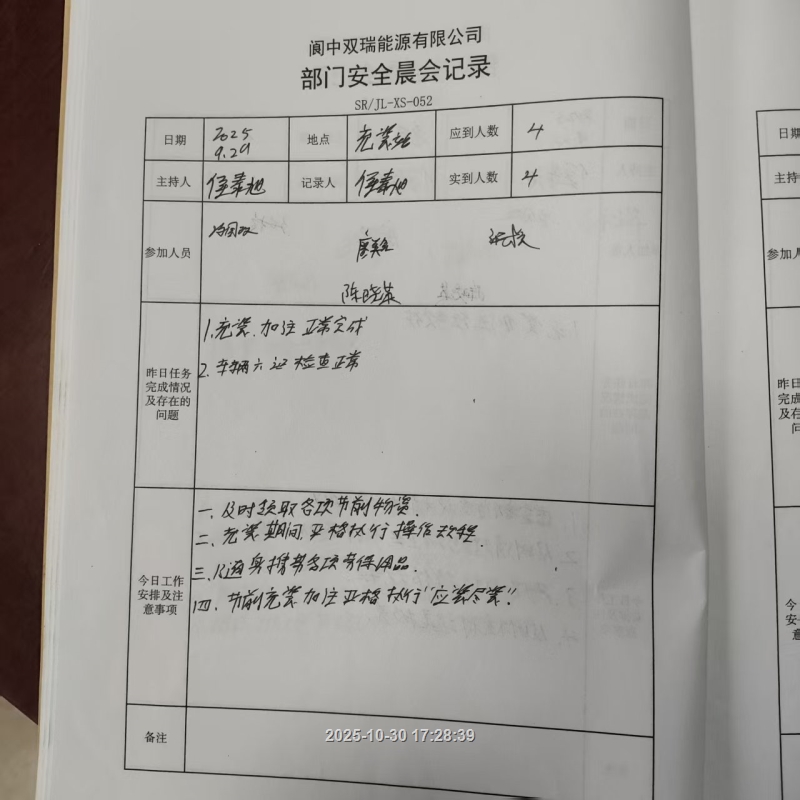 阆中双瑞能源有限公司
部门安全晨会记录
SR/JL-XS-052
日期 2025 9.29 地点 充装站 应到人数 4
主持人 记录人 实到人数 4
参加人员
陈晓蓉
昨日任务完成情况及存在的问题
1.充装.加注正常完成
2.车辆六证检查正常
今日工作安排及注意事项
一、及时领取各项节前物资.
二、充装期间,严格执行操作规程.
三、随身携带各项劳保用品.
四、节前充装加注严格执行“应装尽装”!
备注
2025-10-30 17:28:39
日期
主持
参加人
昨日
完成
及存
问
今
安
意